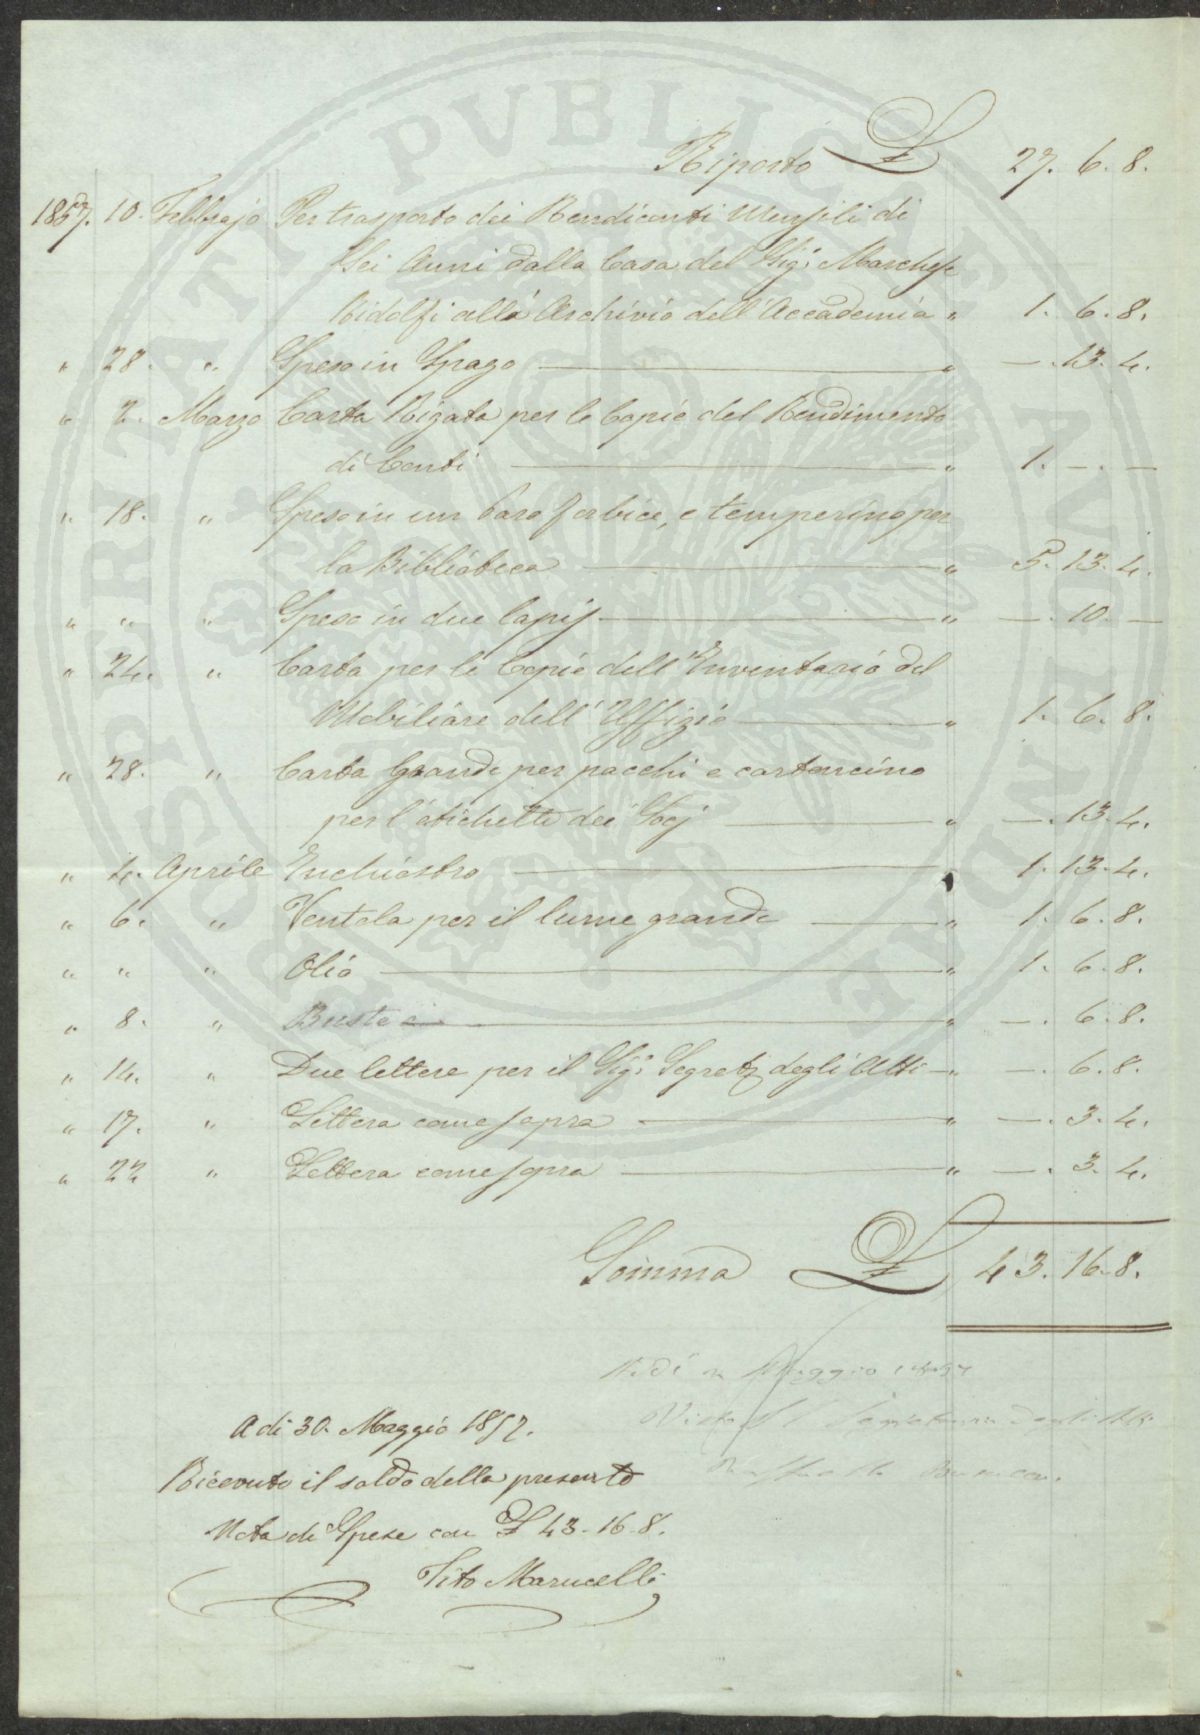 Riporto £ 27. 6. 8.
1857. 10. Febbrajo Per trasporto dei Rendiconti Mensili di
Sei Anni dalla Casa del Sig: Marchese
Ridolfi all'Archivio dell'Accademia " 1. 6. 8.
" 28. " Speso in Spago " —. 13. 4.
" 2. Marzo Carta Rigata per le Copie del Rendimento
di Conti " 1. —. —
" 18. " Speso in un Paro forbice, e temperino per
la Biblioteca " 5. 13. 4.
" " " Speso in due lapis " —. 10. —
" 24. " Carta per le Copie dell'Inventario del
Mobiliare dell'Uffizio " 1. 6. 8.
" 28. " Carta Grande per pacchi e cartoncino
per l'etichette dei Socj " —. 13. 4.
" 4. Aprile Inchiostro " 1. 13. 4.
" 6. " Ventola per il lume grande " 1. 6. 8.
" " " Olio " 1. 6. 8.
" 8. " Buste " —. 6. 8.
" 14. " Due lettere per il Sig: Segret: degli Atti " —. 6. 8.
" 17. " Lettera come sopra " —. 3. 4.
" 22 " Lettera come sopra " —. 3. 4.
Somma £ 43. 16. 8.
Maggio
Visto degli Atti
A dì 30. Maggio 1857.
Ricevuto il saldo della presente
Nota di Spese con £ 43-16-8.
Tito Marucelli
PROSPERITATI PVBLICAE AVGENDAE